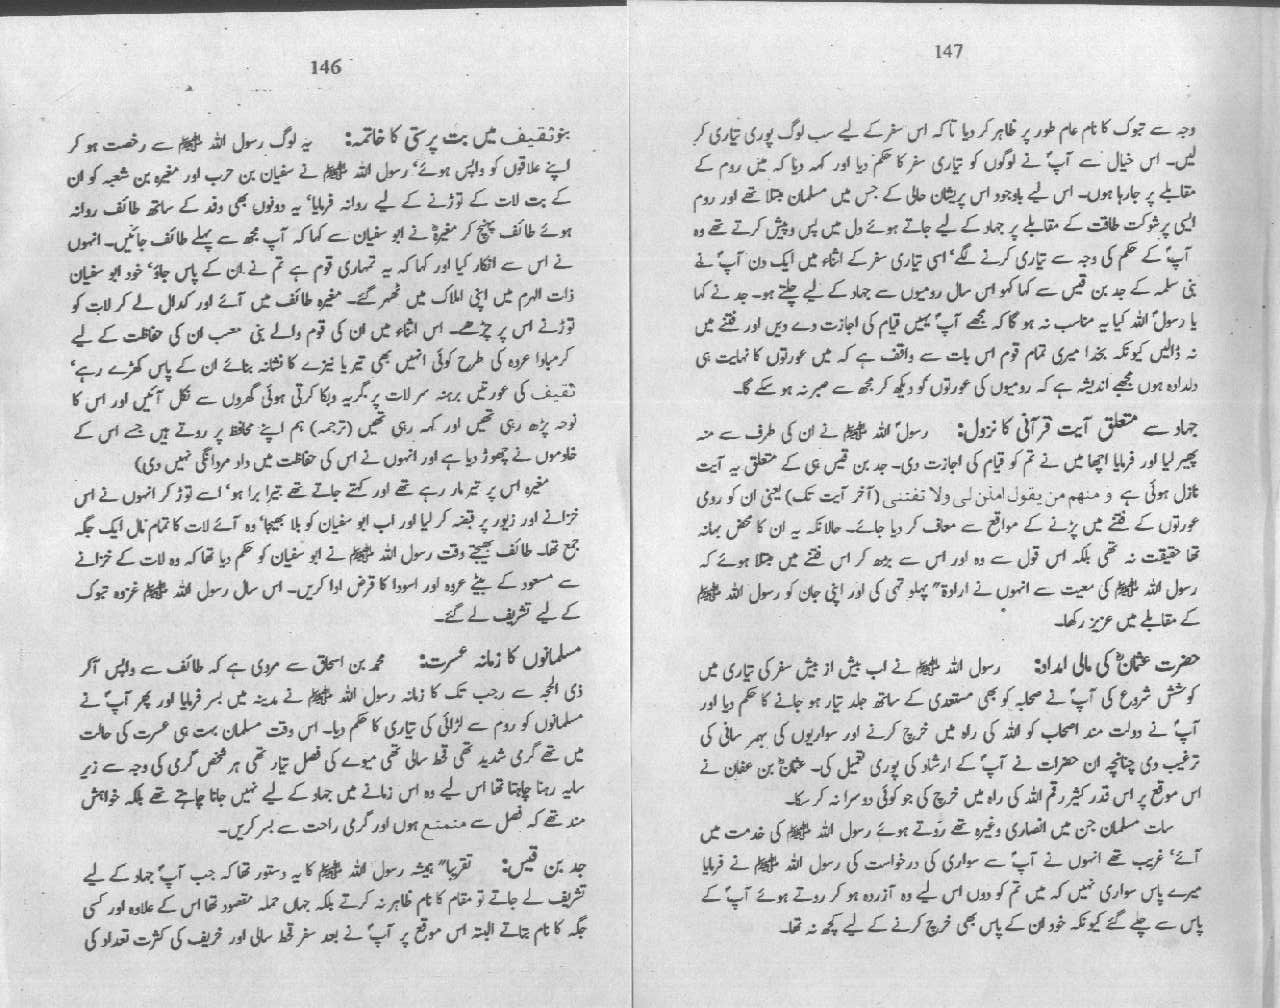 146
بنوثقیف میں بت پرستی کا خاتمہ: یہ لوگ رسول اللہ ﷺ سے رخصت ہو کر
اپنے علاقوں کو واپس ہوئے‘ رسول اللہ ﷺ نے سفیان بن حرب اور مغیرہ بن شعبہ کو ان
کے بت لات کے توڑنے کے لیے روانہ فرمایا‘ یہ دونوں بھی وفد کے ساتھ طائف روانہ
ہوئے طائف پہنچ کر مغیرہؓ نے ابو سفیان سے کہا کہ آپ مجھ سے پہلے طائف جائیں۔ انہوں
نے اس سے انکار کیا اور کہا کہ یہ تمہاری قوم ہے تم نے ان کے پاس جاؤ‘ خود ابو سفیان
ذات الہرم میں اپنی املاک میں ٹھہر گئے۔ مغیرہ طائف میں آئے اور کدال لے کر لات کو
توڑنے اس پر چڑھے۔ اس اثناء میں ان کی قوم والے بنی معتب ان کی حفاظت کے لیے
کر مبادا عروہ کی طرح کوئی انہیں بھی تیر یا نیزے کا نشانہ بنائے ان کے پاس کھڑے رہے‘
ثقیف کی عورتیں برہنہ سر لات پر گریہ وبکا کرتی ہوئی گھروں سے نکل آئیں اور اس کا
نوحہ پڑھ رہی تھیں اور کہہ رہی تھیں (ترجمہ) ہم اپنے محافظ پر روتے ہیں جسے اس کے
خادموں نے چھوڑ دیا ہے اور انہوں نے اس کی حفاظت میں داد مردانگی نہیں دی)
مغیرہ اس پر تیر مار رہے تھے اور کہتے جاتے تھے تیرا برا ہو‘ اسے توڑ کر انہوں نے اس
خزانے اور زیور پر قبضہ کر لیا اور اب ابو سفیان کو بلا بھیجا‘ وہ آئے لات کا تمام مال ایک جگہ
جمع تھا۔ طائف بھیجتے وقت رسول اللہ ﷺ نے ابو سفیان کو حکم دیا تھا کہ وہ لات کے خزانے
سے مسعود کے بیٹے عروہ اور اسودا کا قرض ادا کریں۔ اس سال رسول اللہ ﷺ غزوہ تبوک
کے لیے تشریف لے گئے۔
مسلمانوں کا زمانہ عسرت: محمد بن اسحاق سے مروی ہے کہ طائف سے واپس آکر
ذی الحجہ سے رجب تک کا زمانہ رسول اللہ ﷺ نے مدینہ میں بسر فرمایا اور پھر آپؐ نے
مسلمانوں کو روم سے لڑائی کی تیاری کا حکم دیا۔ اس وقت مسلمان بہت ہی عسرت کی حالت
میں تھے گرمی شدید تھی قحط سالی تھی میوے کی فصل تیار تھی ہر شخص گرمی کی وجہ سے زیر
سایہ رہنا چاہتا تھا اس لیے وہ اس زمانے میں جہاد کے لیے نہیں جانا چاہتے تھے بلکہ خواہش
مند تھے کہ فصل سے متمتع ہوں اور گرمی راحت سے بسر کریں۔
جد بن قیس: تقریباً ہمیشہ رسول اللہ ﷺ کا یہ دستور تھا کہ جب آپؐ جہاد کے لیے
تشریف لے جاتے تو مقام کا نام ظاہر نہ کرتے بلکہ جہاں حملہ مقصود تھا اس کے علاوہ اور کسی
جگہ کا نام بتاتے البتہ اس موقع پر آپؐ نے بعد سفر قحط سالی اور خریف کی کثرت تعداد کی
147
وجہ سے تبوک کا نام عام طور پر ظاہر کر دیا تاکہ اس سفر کے لیے سب لوگ پوری تیاری کر
لیں۔ اس خیال سے آپؐ نے لوگوں کو تیاری سفر کا حکم دیا اور کہہ دیا کہ میں روم کے
مقابلے پر جا رہا ہوں۔ اس لیے باوجود اس پریشان حالی کے جس میں مسلمان مبتلا تھے اور روم
ایسی پر شوکت طاقت کے مقابلے پر جہاد کے لیے جاتے ہوئے دل میں پس و پیش کرتے تھے وہ
آپؐ کے حکم کی وجہ سے تیاری کرنے لگے‘ اسی تیاری سفر کے اثناء میں ایک دن آپؐ نے
بنی سلمہ کے جد بن قیس سے کہا کہو اس سال رومیوں سے جہاد کے لیے چلتے ہو۔ جد نے کہا
یا رسولؐ اللہ کیا یہ مناسب نہ ہو گا کہ مجھے آپؐ یہیں قیام کی اجازت دے دیں اور فتنے میں
نہ ڈالیں کیونکہ بخدا میری تمام قوم اس بات سے واقف ہے کہ میں عورتوں کا نہایت ہی
دلدادہ ہوں مجھے اندیشہ ہے کہ رومیوں کی عورتوں کو دیکھ کر مجھ سے صبر نہ ہو سکے گا۔
جہاد سے متعلق آیت قرآنی کا نزول: رسولؐ اللہ ﷺ نے ان کی طرف سے منہ
پھیر لیا اور فرمایا اچھا میں نے تم کو قیام کی اجازت دی۔ جد بن قیس ہی کے متعلق یہ آیت
نازل ہوئی ہے و منهم من يقول ائذن لى ولا تفتنى (آخر آیت تک) یعنی ان کو رومی
عورتوں کے فتنے میں پڑنے کے مواقع سے معاف کر دیا جائے۔ حالانکہ یہ ان کا محض بہانہ
تھا حقیقت نہ تھی بلکہ اس قول سے وہ اور اس سے بڑھ کر اس فتنے میں مبتلا ہوئے کہ
رسول اللہ ﷺ کی معیت سے انہوں نے ارادۃ" پہلو تہی کی اور اپنی جان کو رسول اللہ ﷺ
کے مقابلے میں عزیز رکھا۔
حضرت عثمانؓ کی مالی امداد: رسول اللہ ﷺ نے اب بیش از بیش سفر کی تیاری میں
کوشش شروع کی آپؐ نے صحابہ کو بھی مستعدی کے ساتھ جلد تیار ہو جانے کا حکم دیا اور
آپؐ نے دولت مند اصحاب کو اللہ کی راہ میں خرچ کرنے اور سواریوں کی بہمر سانی کی
ترغیب دی چنانچہ ان حضرات نے آپؐ کے ارشاد کی پوری تعمیل کی۔ عثمانؓ بن عفان نے
اس موقع پر اس قدر کثیر رقم اللہ کی راہ میں خرچ کی جو کوئی دوسرا نہ کر سکا۔
سات مسلمان جن میں انصاری وغیرہ تھے روتے ہوئے رسول اللہ ﷺ کی خدمت میں
آئے‘ غریب تھے انہوں نے آپؐ سے سواری کی درخواست کی رسول اللہ ﷺ نے فرمایا
میرے پاس سواری نہیں کہ میں تم کو دوں اس لیے وہ آزردہ ہو کر روتے ہوئے آپؐ کے
پاس سے چلے گئے کیونکہ خود ان کے پاس بھی خرچ کرنے کے لیے کچھ نہ تھا۔